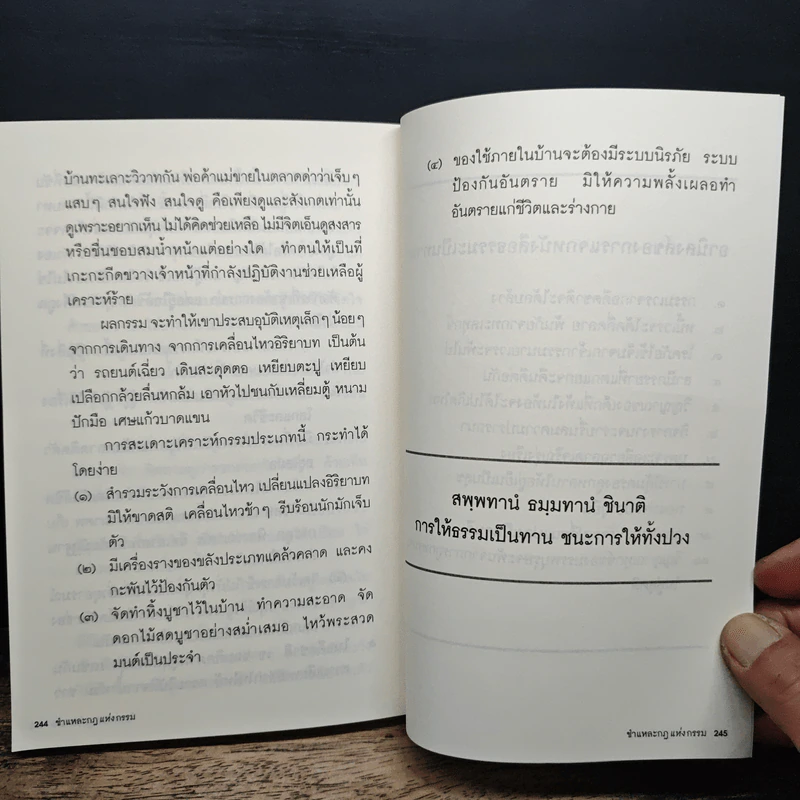 บ้านทะเลาะวิวาทกัน พ่อค้าแม่ขายในตลาดด่าว่าเจ็บๆ
แสบๆ สนใจฟัง สนใจดู คือเพียงดูและสังเกตเท่านั้น
ดูเพราะอยากเห็น ไม่ได้คิดช่วยเหลือ ไม่มีจิตเอ็นดูสงสาร
หรือชื่นชอบสมน้ำหน้าแต่อย่างใด ทำตนให้เป็นที่
เกะกะกีดขวางเจ้าหน้าที่กำลังปฏิบัติงานช่วยเหลือผู้
เคราะห์ร้าย
ผลกรรม จะทำให้เขาประสบอุบัติเหตุเล็กๆ น้อยๆ
จากการเดินทาง จากการเคลื่อนไหวอิริยาบท เป็นต้น
ว่า รถยนต์เฉี่ยว เดินสะดุดตอ เหยียบตะปู เหยียบ
เปลือกกล้วยลื่นหกล้ม เอาหัวไปชนกับเหลี่ยมตู้ หนาม
ปักมือ เศษแก้วบาดแขน
การสะเดาะเคราะห์กรรมประเภทนี้ กระทำได้
โดยง่าย
(๑) สำรวมระวังการเคลื่อนไหว เปลี่ยนแปลงอิริยาบท
มิให้ขาดสติ เคลื่อนไหวช้าๆ รีบร้อนนักมักเจ็บ
ตัว
(๒) มีเครื่องรางของขลังประเภทแคล้วคลาด และคง
กะพันไว้ป้องกันตัว
(๓) จัดทำหิ้งบูชาไว้ในบ้าน ทำความสะอาด จัด
ดอกไม้สดบูชาอย่างสม่ำเสมอ ไหว้พระสวด
มนต์เป็นประจำ
244 ชำแหละกฎ แห่ง กรรม
(๔) ของใช้ภายในบ้านจะต้องมีระบบนิรภัย ระบบ
ป้องกันอันตราย มิให้ความพลั้งเผลอทำ
อันตรายแก่ชีวิตและร่างกาย
สพฺพทานํ ธมฺมทานํ ชินาติ
การให้ธรรมเป็นทาน ชนะการให้ทั้งปวง
ชำแหละกฎ แห่ง กรรม 245